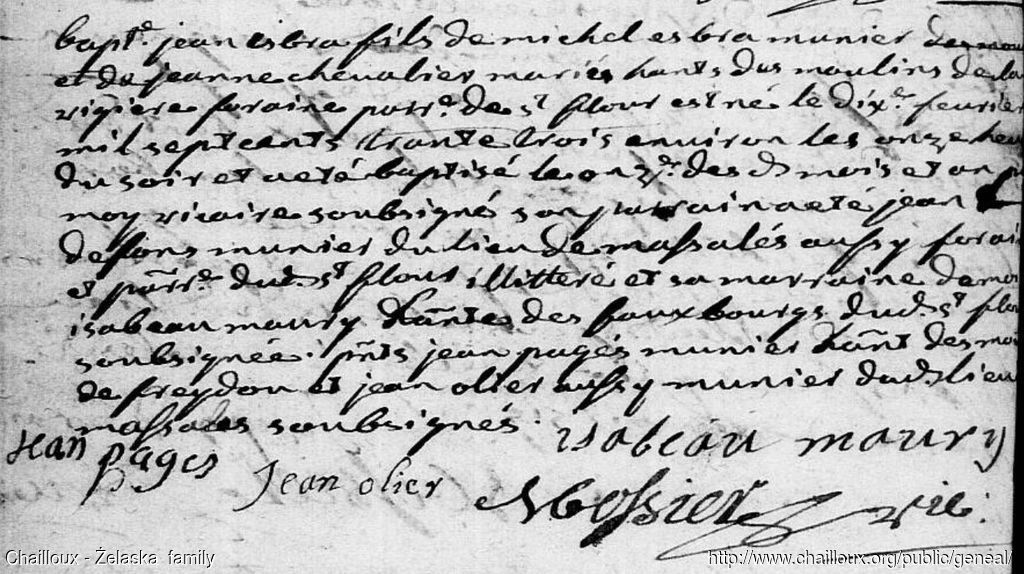 bapt.e jean esbra fils de michel esbra munier
et de jeanne chevalier mariés hants dus moulins de la
rigiere foraine parr.e de s.t flour est né le dix.e feurier
mil septcents trante trois environ les onze heu
du soir et a eté baptisé le onz.e des d. mois et an
moy vicaire soubsigné son parrain a eté jean
defons munier du lieu de massalés aussy forai
et parr.e dud. s.t flour illitteré et sa marraine
isabeau maury hante des fauxbourgs dud. s.t flou
soubsignée. pnts jean pagés munier hant des mou
de freydon et jean olier aussy munier dud. lieu
massales soubsignés.
isabeau maury
Jean pages
Jean olier
vic.
Chailloux - Żelaska family
http://www.chailloux.org/public/geneal/